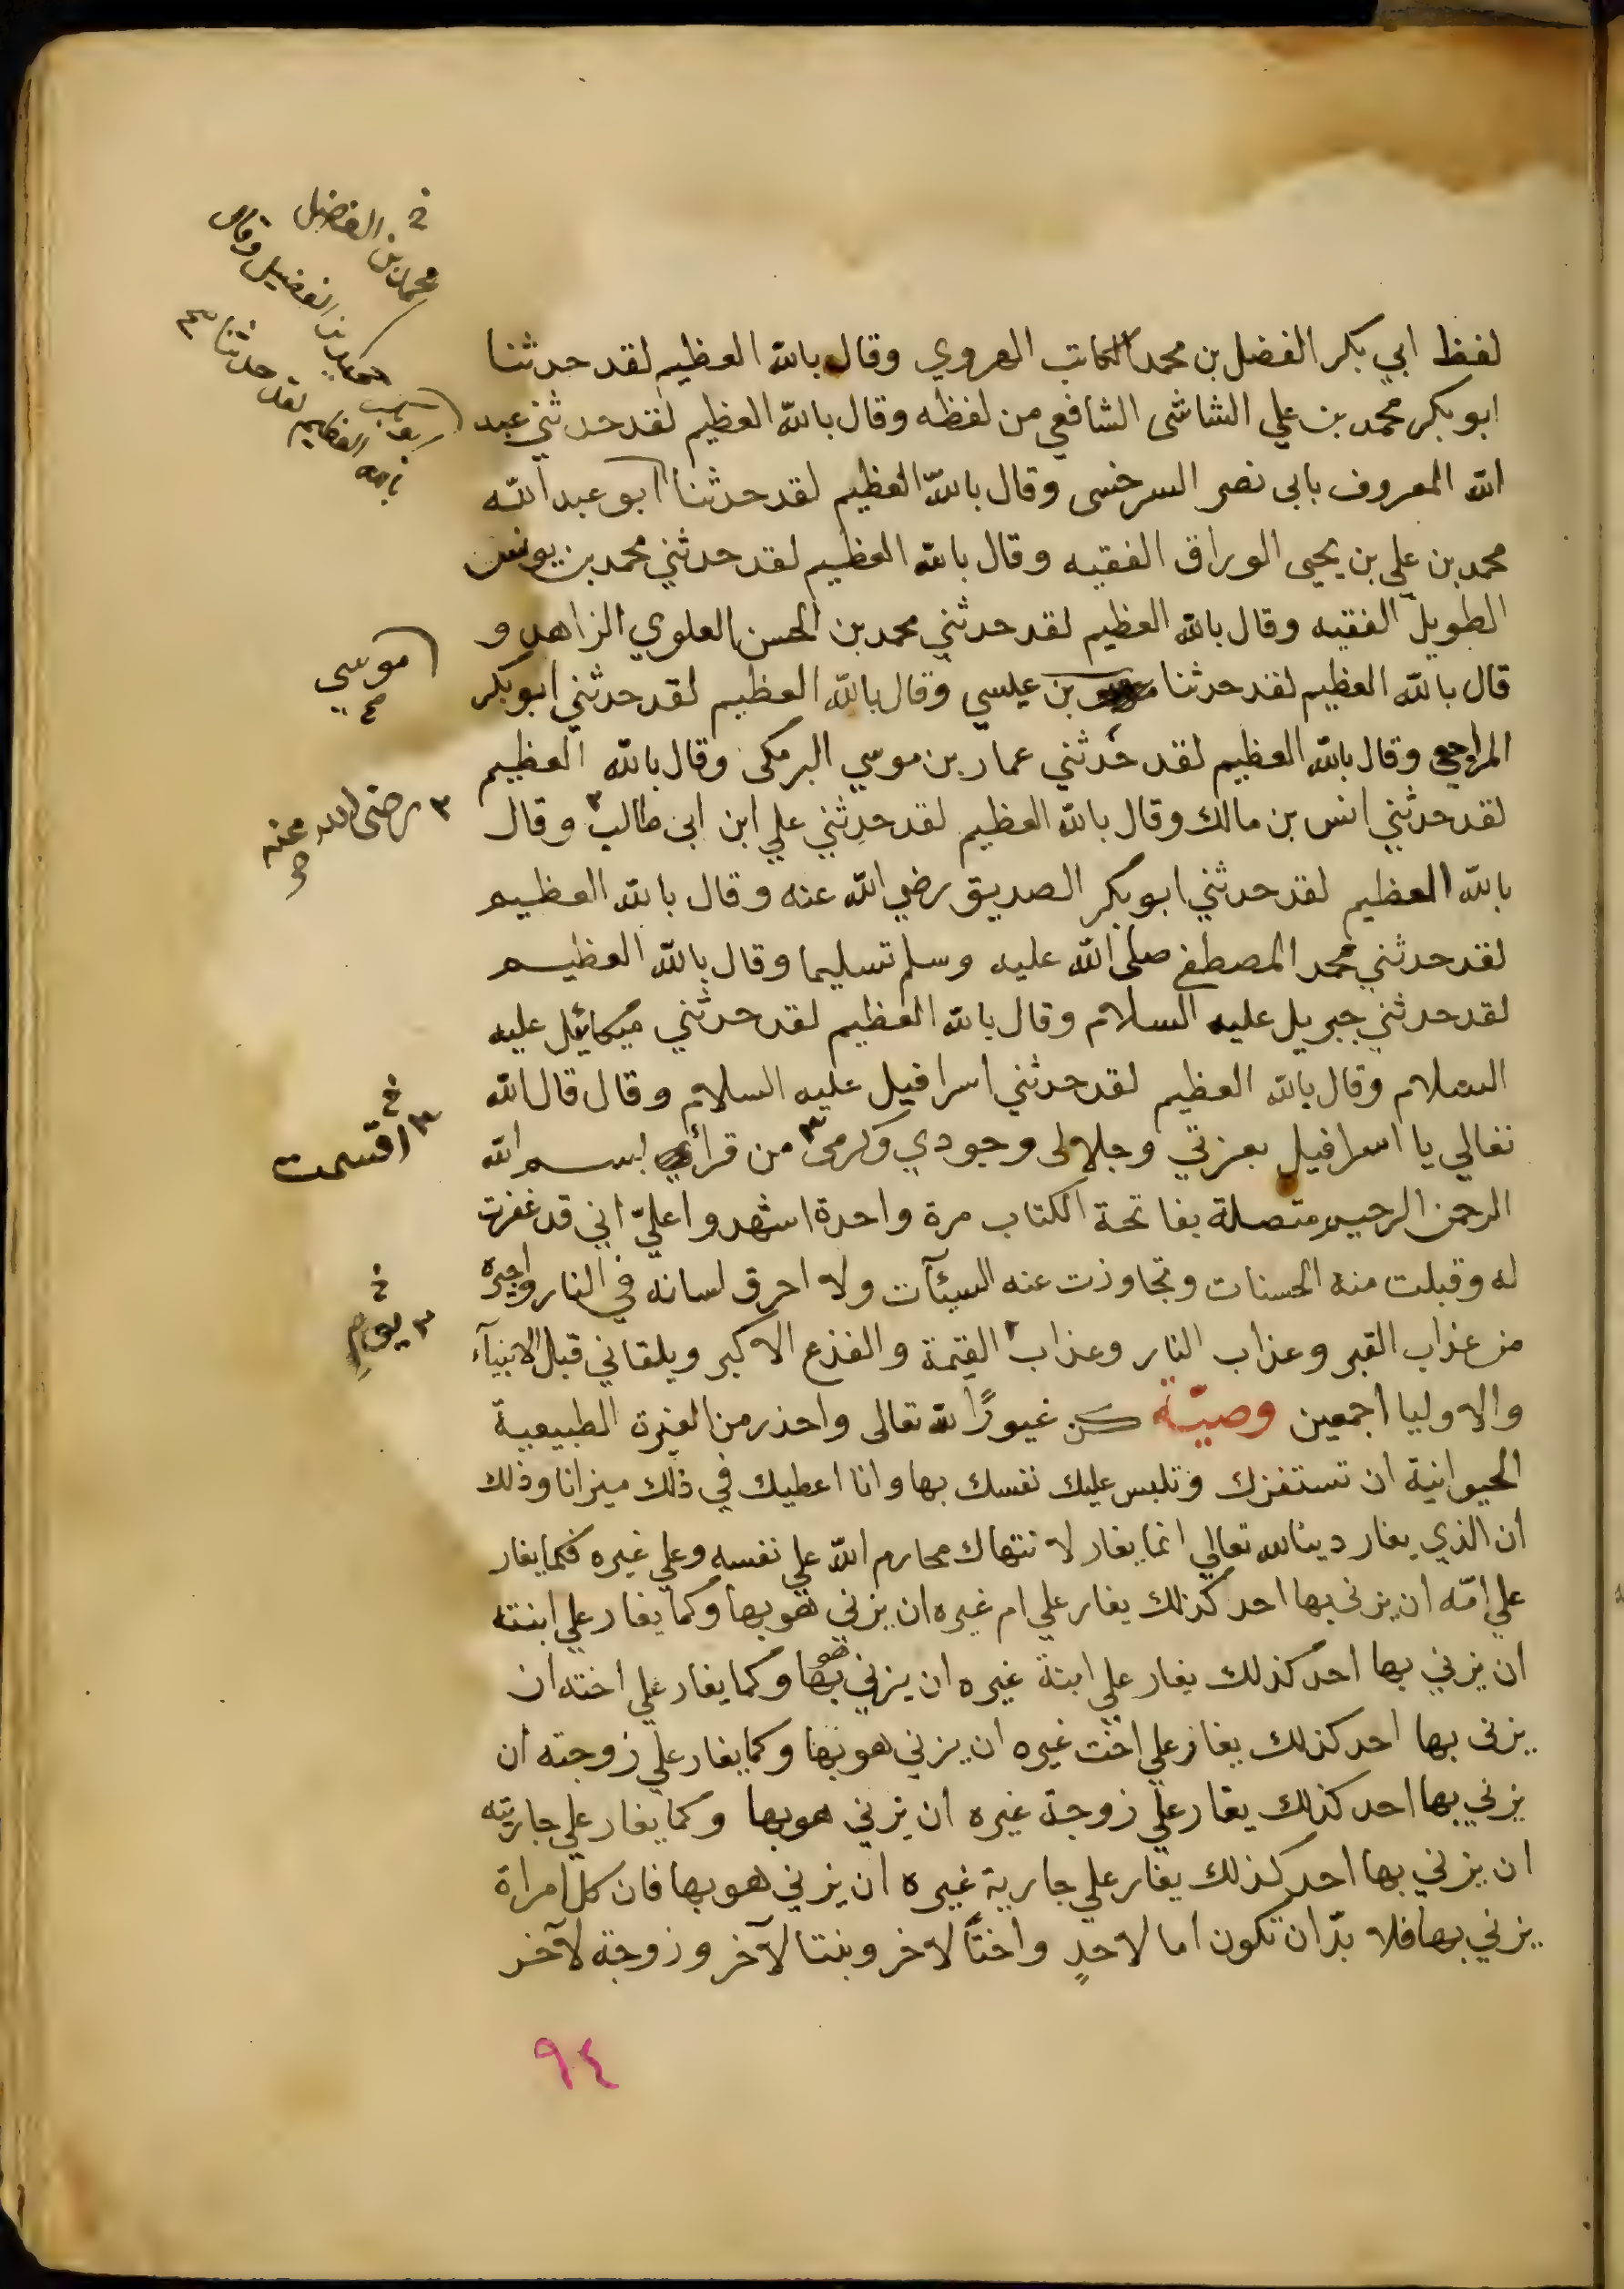 لفظ ابي بكر الفضل بن محمد الكاتب الهروي وقال بالله العظيم لقد حدثنا
ابو بكر محمد بن علي الشاشى الشافعي من لفظه وقال بالله العظيم لقد حدثني عبد
الله المعروف بابى نصر السرخسى وقال بالله العظيم لقد حدثنا ابو عبد الله
محمد بن علي بن يحيى الوراق الفقيه وقال بالله العظيم لقد حدثني محمد بن يونس
الطويل الفقيه وقال بالله العظيم لقد حدثني محمد بن الحسن العلوي الزاهد و
قال بالله العظيم لقد حدثنا بن عيسي وقال بالله العظيم لقد حدثني ابو بكر
الراجعي وقال بالله العظيم لقد حدثني عمار بن موسي البرمكى وقال بالله العظيم
لقد حدثني انس بن مالك وقال بالله العظيم لقد حدثني علي ابن ابى طالب وقال
بالله العظيم لقد حدثني ابو بكر الصديق رضي الله عنه وقال بالله العظيم
لقد حدثني محمد المصطفى صلى الله عليه وسلم تسليما وقال بالله العظيم
لقد حدثني جبريل عليه السلام وقال بالله العظيم لقد حدثني ميكائيل عليه
السلام وقال بالله العظيم لقد حدثني اسرافيل عليه السلام وقال قال الله
تعالي يا اسرافيل بعزتي وجلالى وجودي وكرمى ٣ من قرأ بسم الله
الرحمن الرحيم متصلة بفاتحة الكتاب مرة واحدة اشهدوا عليّ اني قد غفرت
له وقبلت منه الحسنات وتجاوزت عنه السيئآت ولا احرق لسانه في النار واجيره
من عذاب القبر وعذاب النار وعذاب ٢ القيمة والفزع الاكبر ويلقاني قبل الانبيآء
والاوليا اجمعين وصيّة كن غيورًا لله تعالى واحذر من الغيرة الطبيعية
الحيوانية ان تستفزك وتلبس عليك نفسك بها وانا اعطيك في ذلك ميزانا وذلك
ان الذي يغار دينا لله تعالي انما يغار لانتهاك محارم الله علي نفسه وعلي غيره فكما يغار
علي امّه ان يزنى بها احد كذلك يغار علي ام غيره ان يزني هو بها وكما يغار علي ابنته
ان يزني بها احد كذلك يغار علي ابنة غيره ان يزني هو بها وكما يغار علي اخته ان
يزنى بها احد كذلك يغار علي اخت غيره ان يزني هو بها وكما يغار علي زوجته ان
يزني بها احد كذلك يغار علي زوجة غيره ان يزني هو بها وكما يغار علي جاريته
ان يزني بها احد كذلك يغار علي جارية غيره ان يزني هو بها فان كل امراة
يزني بها فلا بدّ ان تكون اما لاحدٍ واختًا لاخر وبنتا لآخر وزوجة لآخر
محمد بن الفضيل
بن الفضيل وقال
بالله العظيم لقد حدثنا
موسي
٢ رضى الله عنه
٣ اقسمت
٢ يوم
٩٤